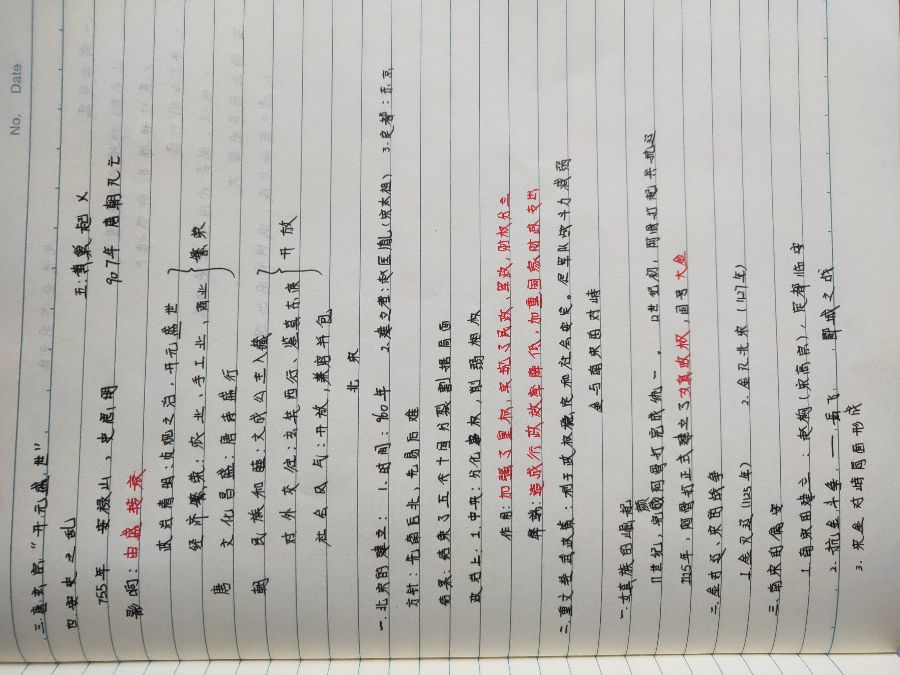 No.    Date
三.唐玄宗:"开元盛世"
四 安史之乱    五:黄巢起义
755年    安禄山,史思明    907年 唐朝灭亡
影响:由盛转衰
政治清明:贞观之治,开元盛世
经济繁荣:农业、手工业、商业 } 繁荣
唐 文化昌盛:唐诗盛行
朝 民族和睦:文成公主入藏
对外交往:玄奘西行、鉴真东渡 } 开放
社会风气:开放,兼容并包
北宋
一.北宋的建立: 1.时间:960年    2.建立者:赵匡胤(宋太祖)    3.定都:东京
方针:先南后北,先易后难
结果:结束了五代十国分裂割据局面
政治上:1.中央:分化事权,削弱相权
作用:加强了皇权,实现了民政、军政,财权分立
弊端:造成行政效率降低,加重国家财政支出
二.重文轻武政策:利于政权稳定和社会安定。但军队战斗力减弱
金与南宋的对峙
一.女真族的崛起
11世纪,完颜阿骨打完成统一。 12世纪初,阿骨打起兵抗辽
1115年,阿骨打正式建立了女真政权,国号大金
二.金灭辽、宋的战争
1.金灭辽(1125年)    2.金灭北宋(1127年)
三.南宋的偏安
1.南宋的建立:赵构(宋高宗),定都临安
2.抗金斗争:——岳飞    郾城之战
3.宋金对峙局面形成